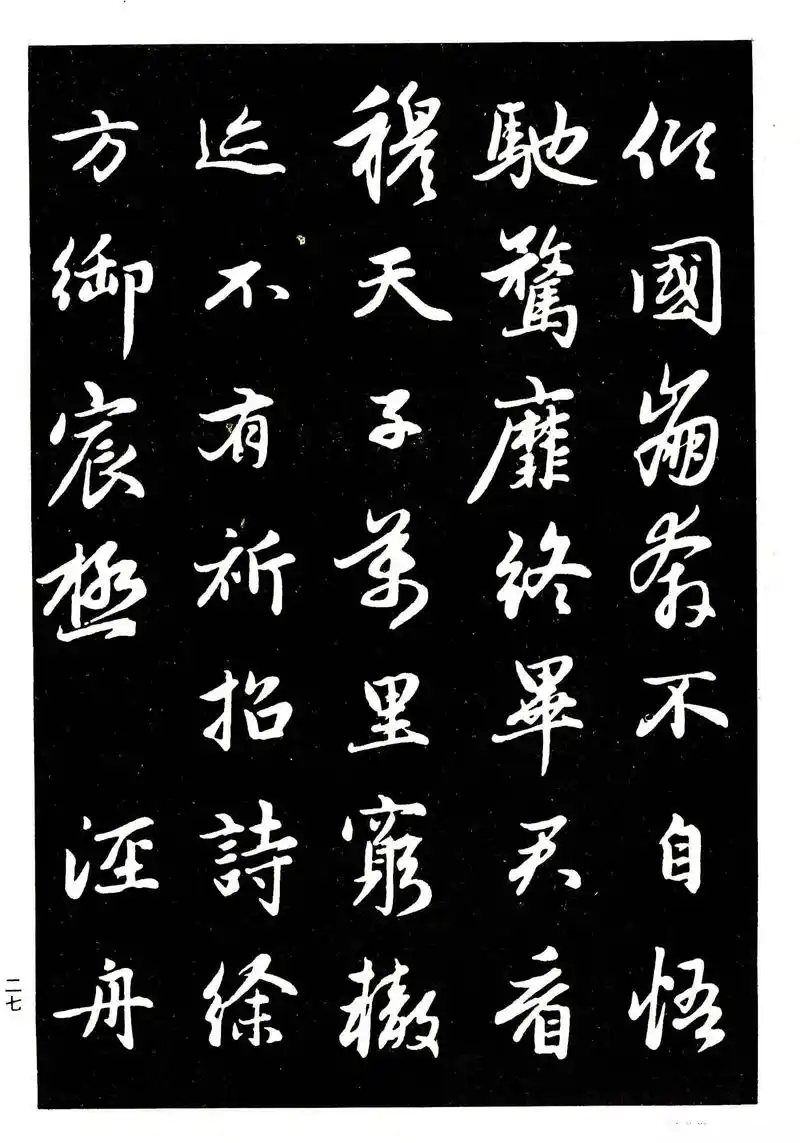 傾國崩奔不自悟
馳騖靡終畢君看
穆天子萬里窮轍
迹不有祈招詩徐
方御宸極 涇舟
二七